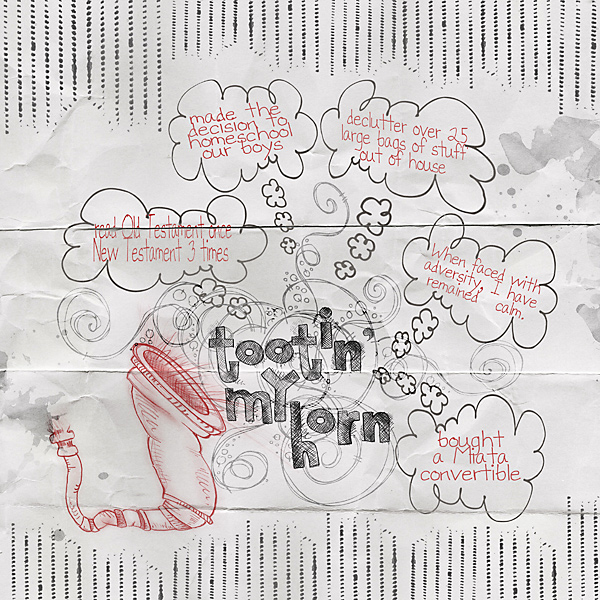 made the
decision to
homeschool
our boys
declutter over 25
large bags of stuff
out of house
read Old Testament once
New Testament 3 times
When faced with
adversity, I have
remained calm.
tootin
my horn
bought
a Miata
convertible